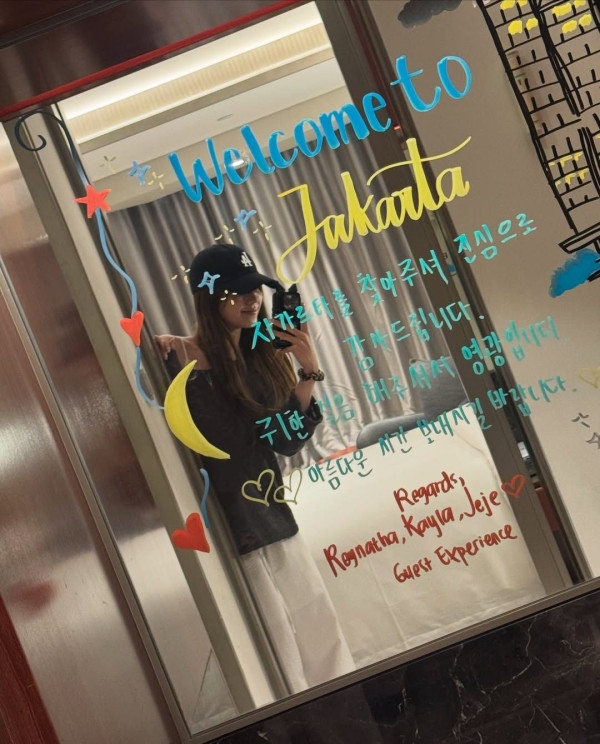 Welcome to
Jakarta
자카르타를 찾아주셔 진심으로
감사드립니다.
귀한 걸음 해주셔서 영광입니다
아름다운 시간 보내시길 바랍니다.
Regards,
Regnatha, Kayla, Jeje
Guest Experience